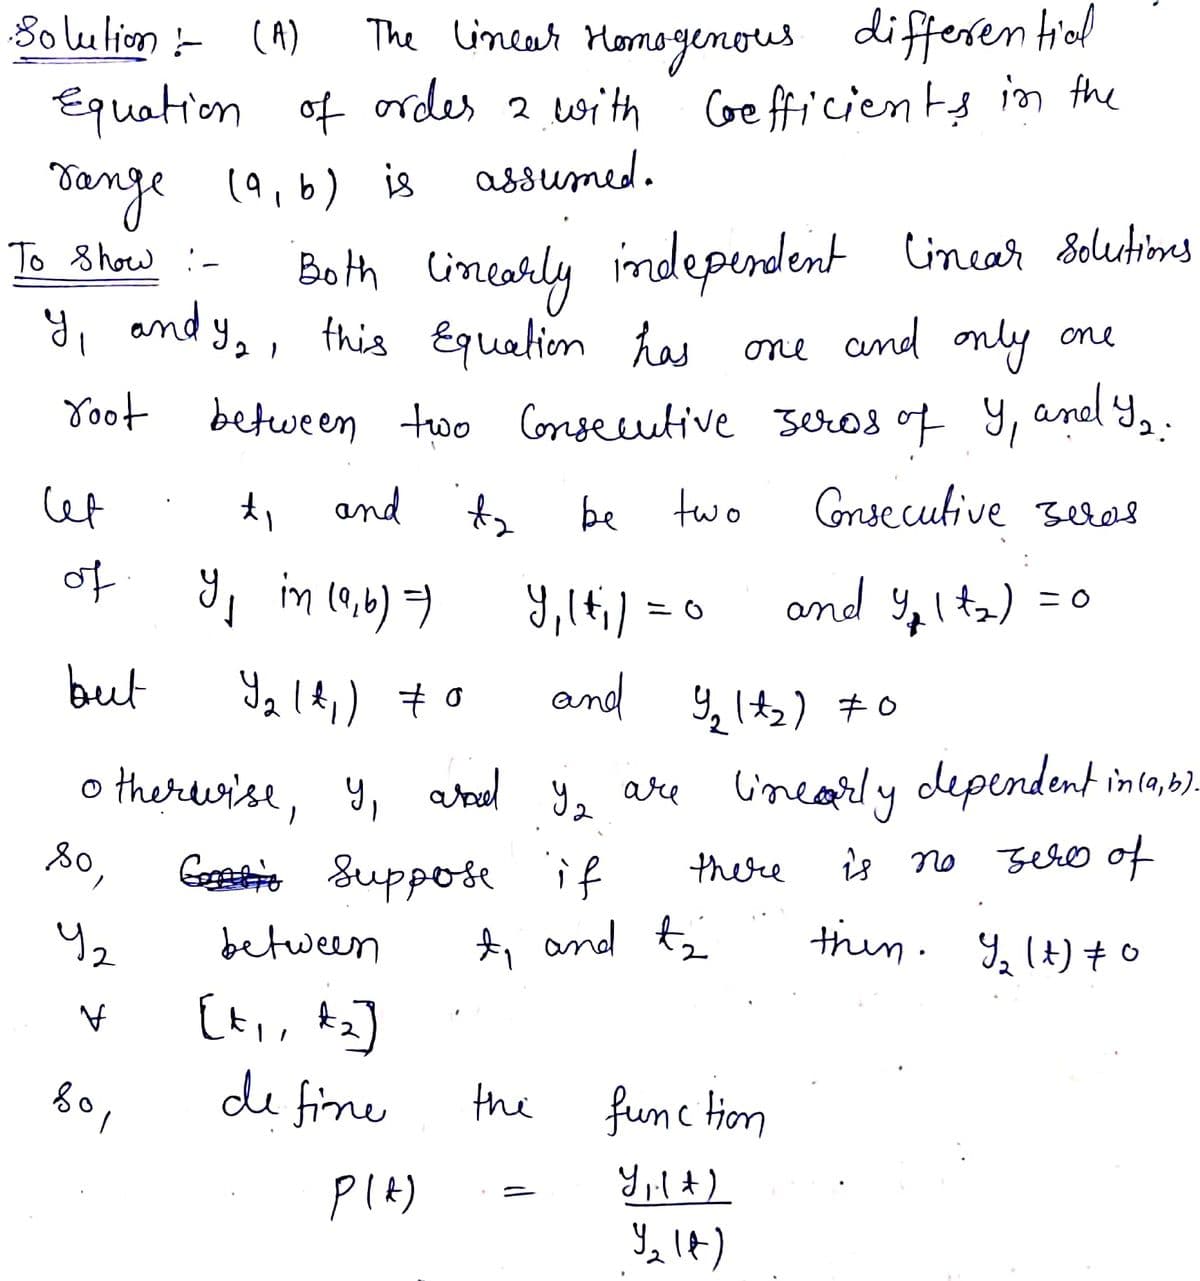 Solution :- (A) The linear Homogenous differential
Equation of order 2 with Coefficients in the
range (a, b) is assumed.
To Show :- Both linearly independent linear Solutions
y₁ and y₂, this Equation has one and only one
root between two Consecutive zeros of y₁ and y₂.
let t₁ and t₂ be two Consecutive zeros
of y₁ in (a,b) ⇒ y₁(t₁) = 0 and y₁(t₂) = 0
but y₂(t₁) ≠ 0 and y₂(t₂) ≠ 0
otherwise, y₁ and y₂ are linearly dependent in (a,b).
So, Suppose if there is no zero of
y₂ between t₁ and t₂ then. y₂(t) ≠ 0
∀ [t₁, t₂]
So, define the function
P(t) = y₁(t)
y₂(t)